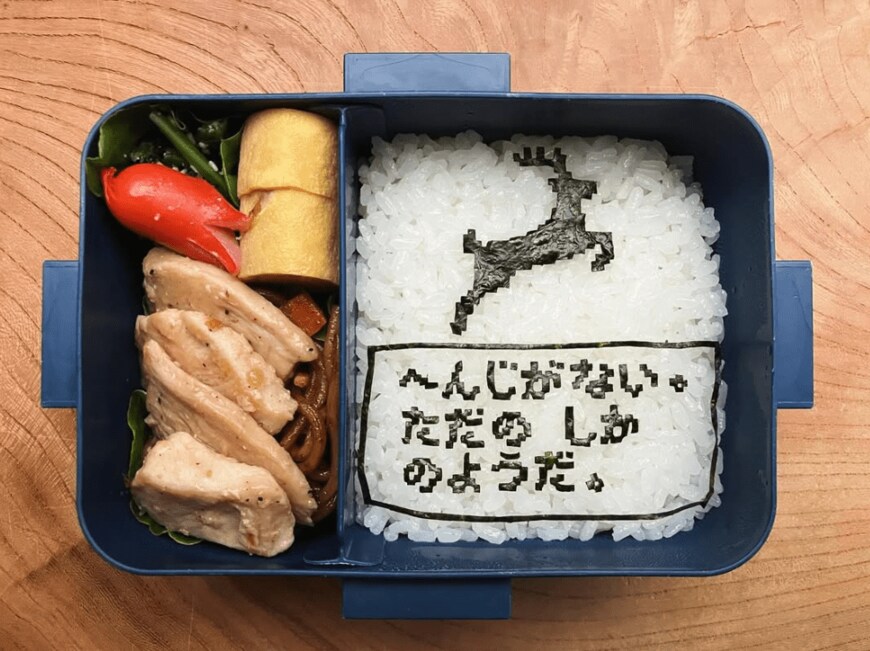 へんじがない。
ただの しか
のようだ。